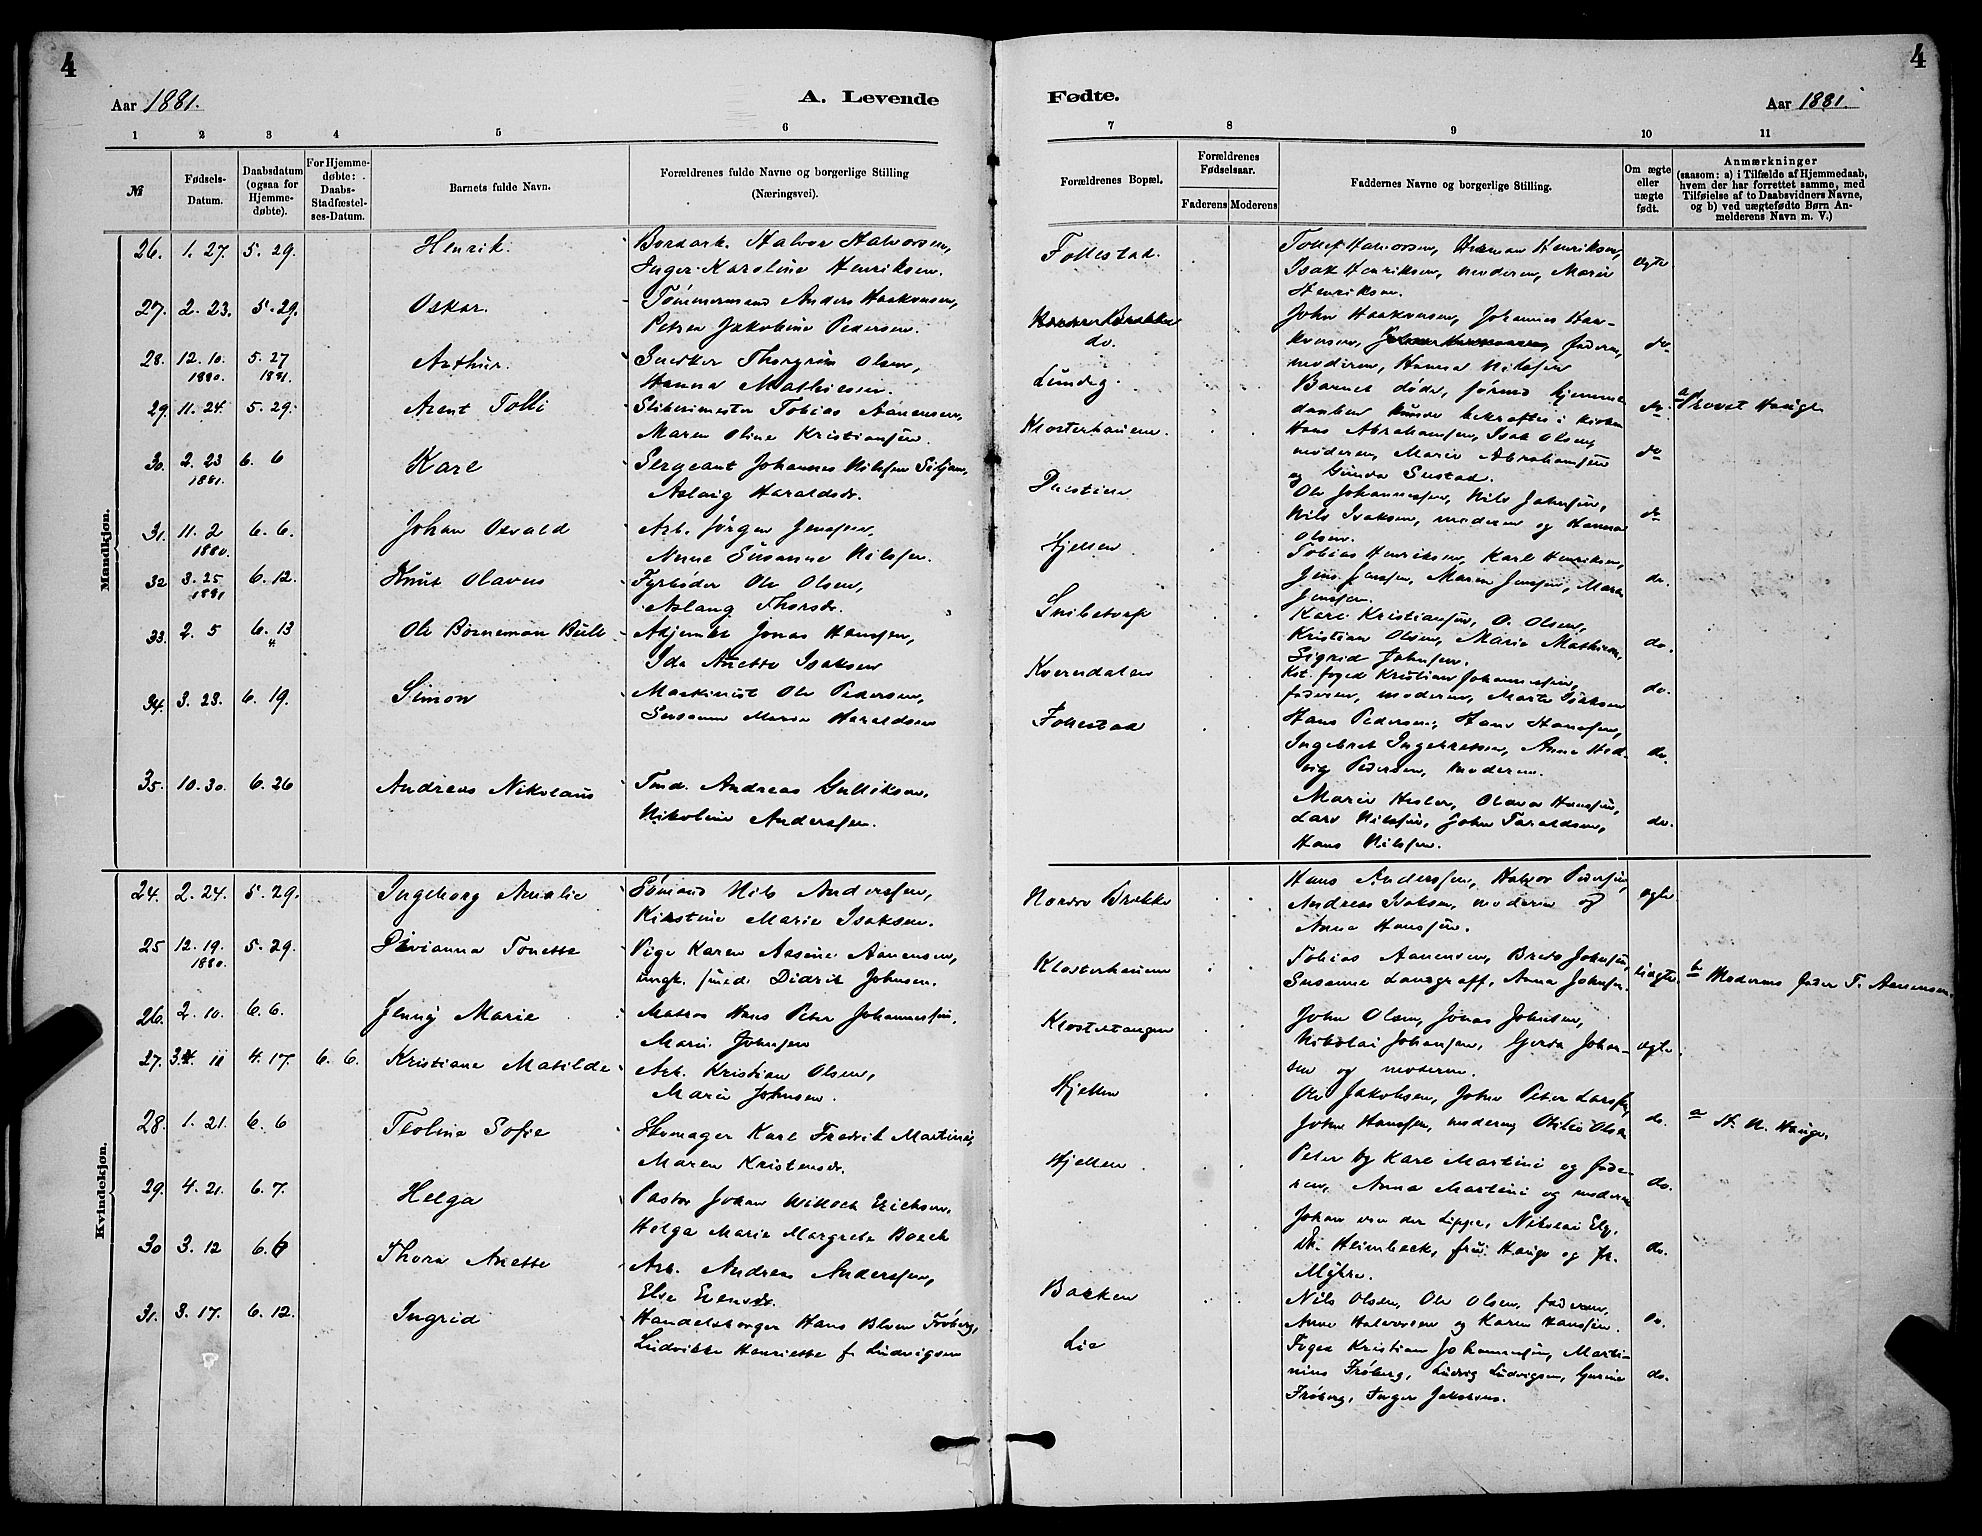 4
4
Aar 1881.
A. Levende
Fødte.
Aar 1881.
1 2 3 4 5 6
7 8 9 10 11
№
Fødsels-
Datum.
Daabsdatum
(ogsaa for
Hjemme-
døbte).
For Hjemme-
døbte:
Daabs-
Stadfæstel-
ses-Datum.
Barnets fulde Navn.
Forældrenes fulde Navne og borgerlige Stilling
(Næringsvei).
Forældrenes Bopæl.
Forældrenes
Fødselsaar.
Faderens Moderens
Faddernes Navne og borgerlige Stilling.
Om ægte
eller
uægte
født.
Anmærkninger
(saasom: a) i Tilfælde af Hjemmedaab,
hvem der har forrettet samme, med
Tilføielse af to Daabsvidners Navne,
og b) ved uægtefødte Børn An-
melderens Navn m. V.)
Mandkjøn.
26. 1. 27. 5. 29. Henrik. Halvor Halvorsen,
Inger Karoline Henriksen.
Follestad.
Tollef Halvorsen, Herman Henriksen,
Isak Henriksen, moderen, Maria
Henriksen.
ægte
27. 2. 23. 5. 29. Oskar. Tømmermand Anders Haakonsen,
Petra Jakobine Pedersen.
do.
John Haakonsen, Johannes Haa-
konsen, faderen,
moderen, Hanna Nilssen
do
28. 12. 10. 1880. 5. 27 1881. Arthur. Snedker Thorgrim Olsen,
Hanna Mathiesen
Lundeg.
Barnet døde, førend hjemme
daaben kunde bekræftes i kirken
do.
a Provst Hauge
29. 11. 24. 5. 29. Arent Tolli Tobias Aanensen,
Maren Oline Kristiansen.
Klosterhauen.
Hans Abrahamsen, Isak Olsen,
moderen, Maria Abrahamsen
og Gunda
do
30. 2. 23 1881. 6. 6 Karl Sergeant Johannes Nilssen Siljan,
Aslaug Haraldsdr.
Ole Johannessen, Nils Johnsen,
Nils Isaksen, moderen og Hanna
Olsen.
do
31. 11. 2 1880. 6. 6. Johan Osvald Arb. Jørgen Jenssen,
Anne Susanne Nilssen.
Hjellen
Tobias Henriksen, Karl Henriksen,
Jens Jenssen, Maren Jensen, Mara
Jenssen.
do.
32 3. 25 1881 6. 12. Knut Olavus Fyrbøder Ole Olsen,
Aslaug Thorsdr.
Snibetorp
Karl Kristiansen, O. Olsen,
Kristian Olsen, Maria Mathisen,
Sigrid Johnsen.
do.
33. 2. 5 6. 13 Ole Bornemann Bull Adjunkt Jonas Hanssen,
Ida Anette Isaksen
Kverndalen
Kst. foged Kristian Johannessen,
faderen, moderen, Marte Isaksen
do.
34. 3. 23. 6. 19. Simon Maskinist Ole Pedersen,
Susanne Maria Haraldsen
Follestad
Hans Pedersen, Hans Hanssen,
Ingebret Ingebretsen, Anne Hed-
vig Pedersen, moderen.
do.
35. 10. 30. 6. 26 Andreas Nikolaus Tmd. Andreas Gulliksen,
Nikoline Anderssen.
Maria Hesler, Olava Hanssen,
Lars Nilssen, John Taraldsen,
Hans Nilssen.
do.
Kvindekjøn.
24. 2. 24. 5. 29. Ingeborg Amalie Sømand Nils Anderssen,
Kirstine Marie Isaksen.
Nordre Brekke
Hans Anderssen, Halvor Pedersen,
Andreas Isaksen, moderen og
Anna Hanssen.
ægte
25 12. 19. 1880. 5. 29. Divianna Tonette Pige Karen Aasine Aanensen,
ungk. smed. Didrik Johnsen.
Klosterhauen
Tobias Aanensen, Johnsen,
Susanne Landgraff, Anna Johnsen.
uægte
b Moderens fader T. Aanensen.
26. 2. 10. 6. 6. Jenny Marie Matros Hans Peter Johannessen,
Marie Johnsen
Klostertangen
John Olsen, Jonas Johnsen,
Nikolai Johansen, Gerda Johan-
sen og moderen.
ægte
27. 3. 11 4. 17. 6. 6. Kristiane Matilde Arb. Kristian Olsen,
Marie Johnsen.
Hjellen
Ole Jakobsen, John Peter Larssen,
John Hanssen, moderen, Otilie Olsen
do.
a St. N. Hauge
28. 1. 21. 6. 6 Teoline Sofie Karl Fredrik Martini,
Maren Kristensdr.
Hjellen
Peter og Karl Martini og fade-
ren, Anna Martini og moderen
do.
29. 4. 21. 6. 7. Helga Pastor Johan Willoch Erichsen,
Helga Marie Margrete Bosch
Johan von der Lippe, Nikolai Elg,
Dr. Heimbeck, fru Hauge og fr.
Myhre.
do.
30 3. 12 6. 6 Thora Anette Arb. Andreas Anderssen,
Else Evensdr.
Bakken
Nils Olsen, Ole Olsen, faderen,
Anne Halvorsen og Karen Hanssen.
do.
31. 3. 17. 6. 12. Ingrid Handelsborger Hans Blom Frøberg,
Ludvikke Henriette f. Ludvigsen
Lie
Foged Kristian Johannessen, Marti-
nius Frøberg, Ludvig Ludvigsen, Gurine
Frøberg, Inger Jakobsens.
do.